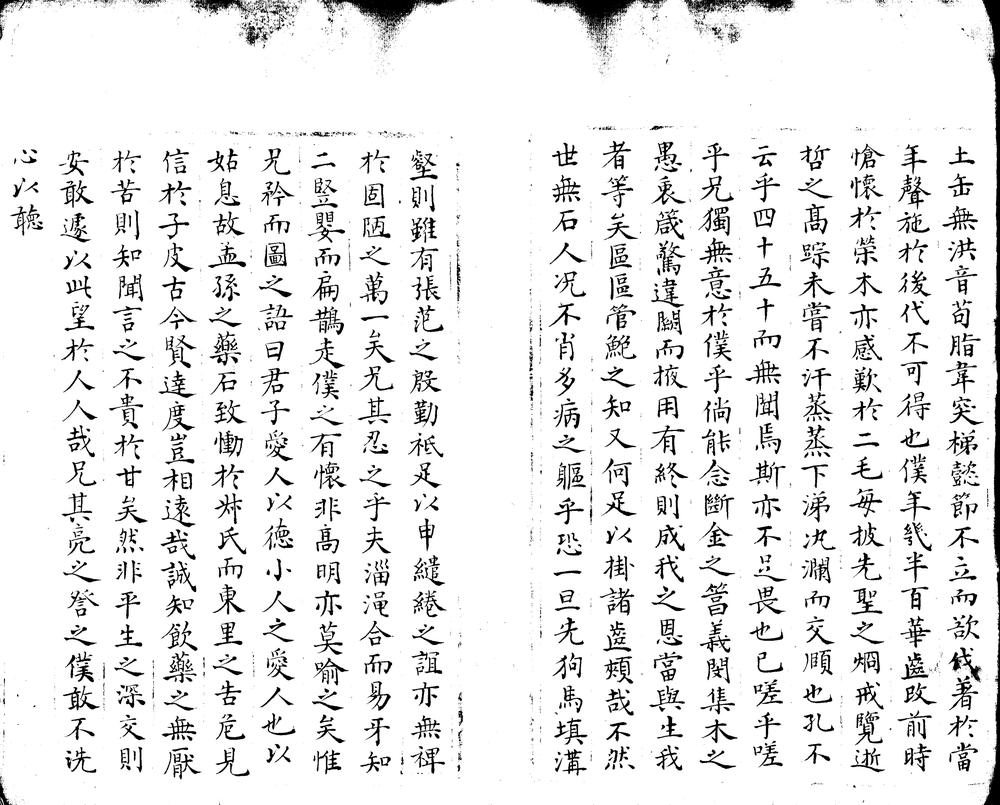 土缶無洪音苟脂韋突梯懿節不立而欲伐著於當
年聲施於後代不可得也僕年幾半百華齒改前時
愴懷於榮木亦感歎於二毛每披先聖之炯戒覽逝
哲之高踪未嘗不汗蒸蒸下涕汍瀾而交頤也孔不
云乎四十五十而無聞焉斯亦不足畏也已嗟乎嗟
乎兄獨無意於僕乎倘能念斷金之簪義閔集木之
愚衷箴驚違闕而掖用有終則成我之恩當與生我
者等矣區區管鮑之知又何足以掛諸齒頰哉不然
世無石人况不肖多病之軀乎恐一旦先狗馬填溝
壑則雖有張范之殷勤祗足以申繾綣之誼亦無裨
於固陋之萬一矣兄其忍之乎夫淄澠合而易牙知
二豎嬰而扁鵲走僕之有懷非高明亦莫喻之矣惟
兄矜而圖之語曰君子愛人以德小人之愛人也以
姑息故孟孫之藥石致慟於叔氏而東里之吿危見
信於子皮古今賢達度豈相遠哉誠知飲藥之無厭
於苦則知聞言之不貴於甘矣然非平生之深交則
安敢遽以此望於人人哉兄其亮之詧之僕敢不洗
心以聽